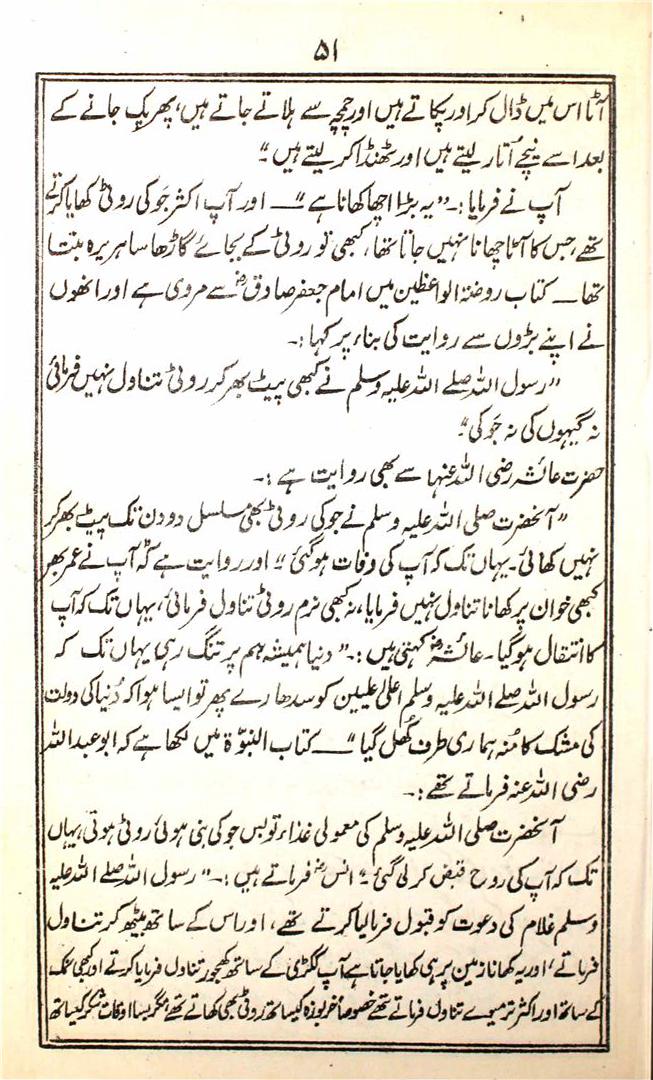 ۵۱
آٹا اس میں ڈال کر اور پکاتے ہیں اور چمچہ سے ہلاتے جاتے ہیں، پھر پک جانے کے
بعد اسے نیچے اُتار لیتے ہیں اور ٹھنڈا کر لیتے ہیں"
آپ نے فرمایا:۔ "یہ بڑا اچھا کھانا ہے" ــ اور آپ اکثر جَو کی روٹی کھایا کرتے
تھے، جس کا آٹا چھانا نہیں جاتا تھا، کبھی تو روٹی کے بجائے گاڑھا سا ہریرہ بنتا
تھا ــ کتاب روضۃ الواعظین میں امام جعفر صادقؓ سے مروی ہے اور انھوں
نے اپنے بڑوں سے روایت کی بناء پر کہا:۔
"رسول اللہ صلے اللہ علیہ وسلم نے کبھی پیٹ بھر کر روٹی تناول نہیں فرمائی
نہ گیہوں کی نہ جَو کی"۔
حضرت عائشہ رضی اللہ عنہا سے بھی روایت ہے:۔
"آنحضرت صلی اللہ علیہ وسلم نے جو کی روٹی بھی مسلسل دو دن تک پیٹ بھر کر
نہیں کھائی۔ یہاں تک کہ آپ کی وفات ہو گئی" اور روایت ہے کہ آپ نے عمر بھر
کبھی خوان پر کھانا تناول نہیں فرمایا، نہ کبھی نرم روٹی تناول فرمائی، یہاں تک کہ آپ
کا انتقال ہو گیا۔ عائشہؓ کہتی ہیں:۔ "دنیا ہمیشہ ہم پر تنگ رہی یہاں تک کہ
رسول اللہ صلے اللہ علیہ وسلم اعلیٰ علیین کو سدھارے پھر تو ایسا ہوا کہ دُنیا کی دولت
کی مشک کا مُنہ ہماری طرف کُھل گیا" ــ کتاب النبوّۃ میں لکھا ہے کہ ابو عبداللہ
رضی اللہ عنہ فرماتے تھے:۔
آنحضرت صلی اللہ علیہ وسلم کی معمولی غذاء تو بس جو کی بنی ہوئی روٹی ہوتی، یہاں
تک کہ آپ کی روح قبض کر لی گئی"۔ انسؓ فرماتے ہیں:۔ "رسول اللہ صلے اللہ علیہ
وسلم غلام کی دعوت کو قبول فرما لیا کرتے تھے، اور اس کے ساتھ بیٹھ کر تناول
فرماتے، اور یہ کھانا زمین پر ہی کھایا جاتا ہے آپ ککڑی کے ساتھ کھجور تناول فرمایا کرتے اور کبھی نمک
کے ساتھ اور اکثر تر میوے تناول فرماتے تھے خصوصاً خربوزہ کیساتھ روٹی بھی کھاتے تھے مگر بسا اوقات شکر کیساتھ